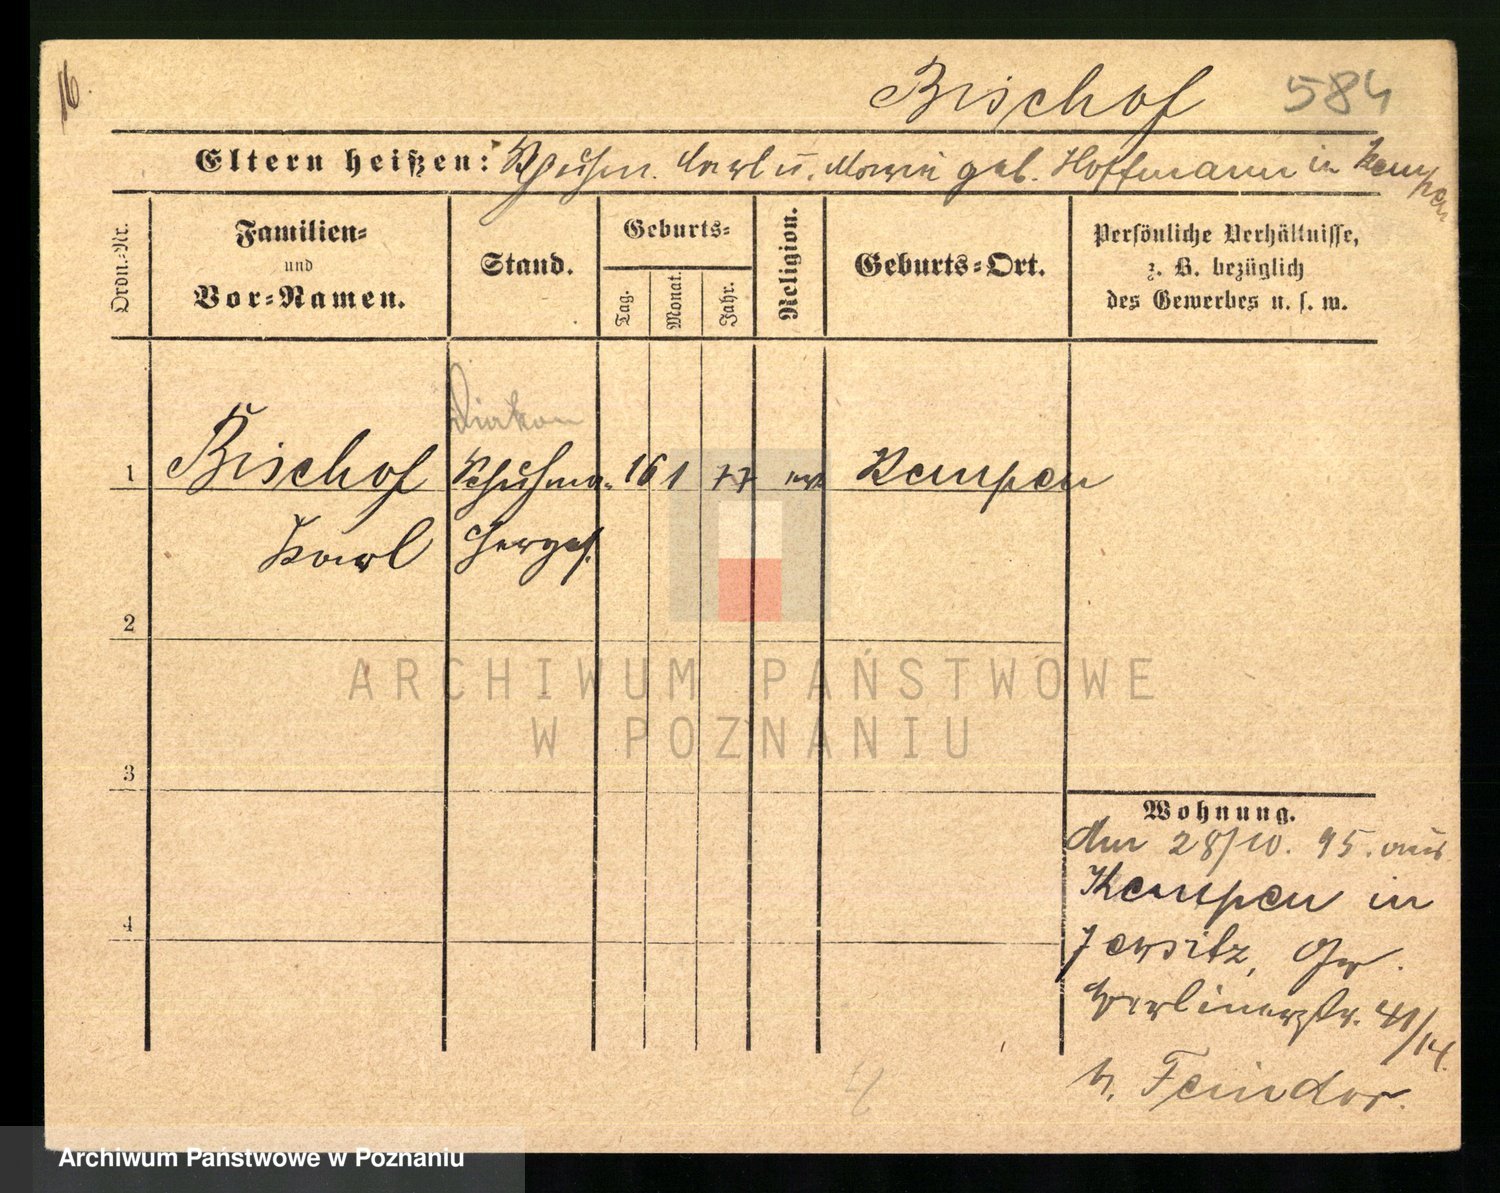 16.
Bischof 584
Eltern heißen: Schuhm. Karl u. Marie geb. Hoffmann in Kempen
Ordn.-Nr.
Familien-
und
Vor-Namen.
Stand.
Geburts-
Tag.
Monat.
Jahr.
Religion.
Geburts-Ort.
Persönliche Verhältnisse,
z. B. bezüglich
des Gewerbes u. s. w.
Diakon
1 Bischof Schuhma- 16 1 77 Kempen
Karl cherges.
2
3
4
Wohnung.
Am 28/10. 95. aus
Kempen in
Jersitz, Gr.
Berlinerstr. 41/14.
b. Feindor.
ARCHIWUM PAŃSTWOWE
W POZNANIU
Archiwum Państwowe w Poznaniu